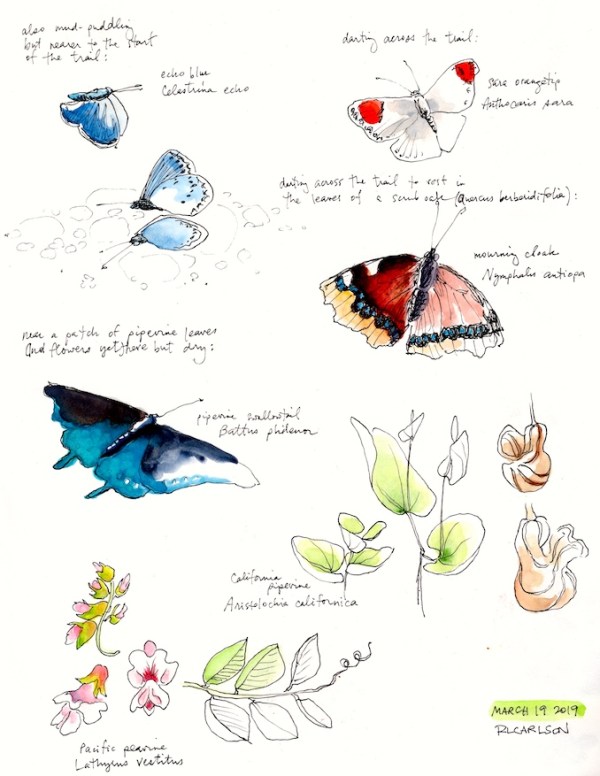 also mud-puddling
but nearer to the start
of the trail:
echo blue
Celestrina echo
darting across the trail:
sara orangetip
Anthocaris sara
darting across the trail to rest in
the leaves of a scrub oak (Quercus berberidifolia):
mourning cloak
Nymphalis antiopa
near a patch of pipevine leaves
and flowers there but dry:
pipevine swallowtail
Battus philenor
California
pipevine
Aristolochia californica
Pacific peavine
Lathyrus vestitus
MARCH 19 2019
RLCARLSON